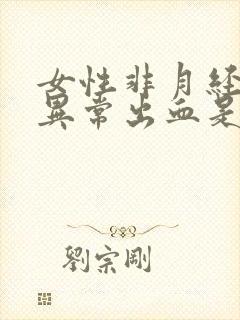 女性非月经
異常出血是
劉宗剛